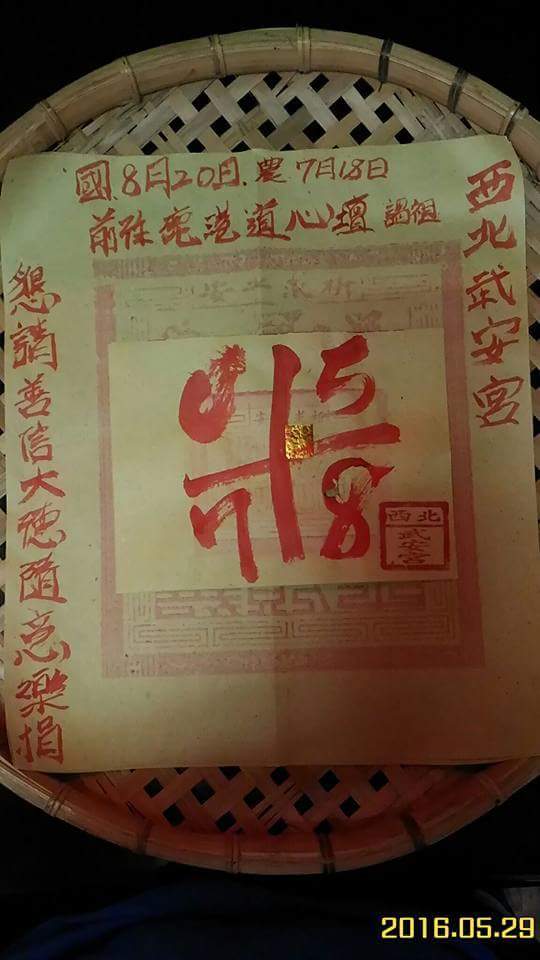 西北武安宮
國.8月20日.農7月18日
前往鹿港道心壇 謁祖
懇請善信大德隨意樂捐
5
7
8
西北
武安宮
2016.05.29